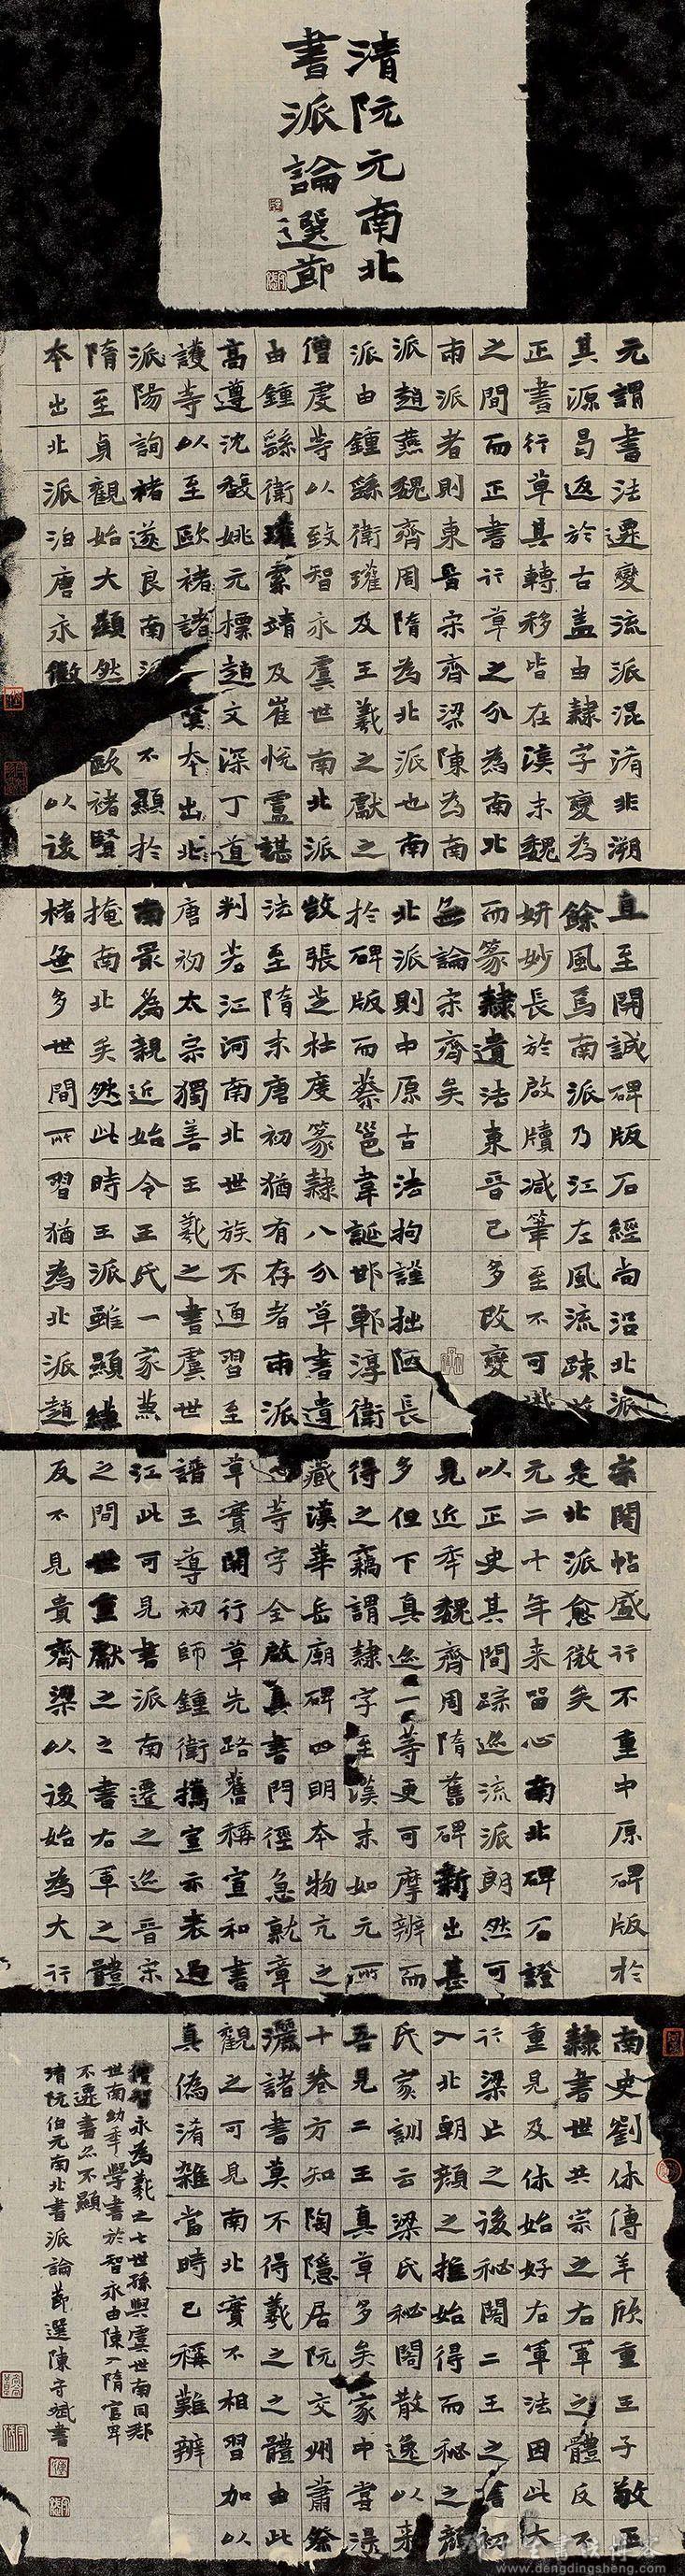 清阮元南北
書派論選節
元謂書法遷變流派混淆非溯
其源曷返於古蓋由隸字變為
正書行草其轉移皆在漢末魏
之間而正書行草之分為南北
兩派者則東晉宋齊梁陳為南
派趙燕魏齊周隋為北派也南
派由鍾繇衛瓘及王羲之獻之
僧虔等以致智永虞世南北派
由鍾繇衛瓘索靖及崔悅盧諶
高遵沈馥姚元標趙文深丁道
護等以至歐褚諸一賢本出北
派陽詢褚遂良南不顯於
隋至貞觀始大顯然歐褚賢
本出北派洎唐永徽以後
直至開誠碑版石經尚沿北派
餘風焉南派乃江左風流疎放
妍妙長於啟牘減筆至不可
而篆隸遺法東晉已多改變
無論宋齊矣
北派則中原古法拘謹拙陋長
於碑版而蔡邕韋誕邯鄲淳衛
故張芝杜度篆隸八分草書遺
法至隋末唐初猶有存者兩派
判若江河南北世族不通習至
唐初太宗獨善王羲之書虞世
南最為親近始令王氏一家兼
掩南北矣然此時王派雖顯縑
楮無多世間所習猶為北派趙
宋閣帖盛行不重中原碑版於
是北派愈微矣
元二十年来留心南北碑石證
以正史其間踪迹流派朗然可
見近年魏齊周隋舊碑新出甚
多但下真迹一等更可摩辨而
得之竊謂隸字至漢末如元所
藏漢華岳廟碑四明本物亢之
也等字全啟真書門徑急就章
草實開行草先路舊稱宣和書
譜王導初師鍾衛攜宣示表過
江此可見書派南遷之迹晋宋
之間世重獻之之書右軍之體
反不見貴齊梁以後始為大行
南史劉休傳羊欣重王子敬正
隸書世共宗之右軍之體反不
重見及休始好右軍法因此大
行梁亡之後秘閣二王之書初
入北朝顏之推始得而秘之顏
氏家訓云梁氏秘閣散逸以来
吾見二王真草多矣家中嘗得
十卷方知陶隱居阮交州蕭祭
灑諸書莫不得羲之之體由此
觀之可見南北實不相習加以
真偽淆雜當時已稱難辨
僧智永為羲之七世孫與虞世南同郡
世南幼年學書於智永由陳入隋官卑
不遷書亦不顯
清阮伯元南北書派論節選陳守斌書
www.dengdingsheng.com